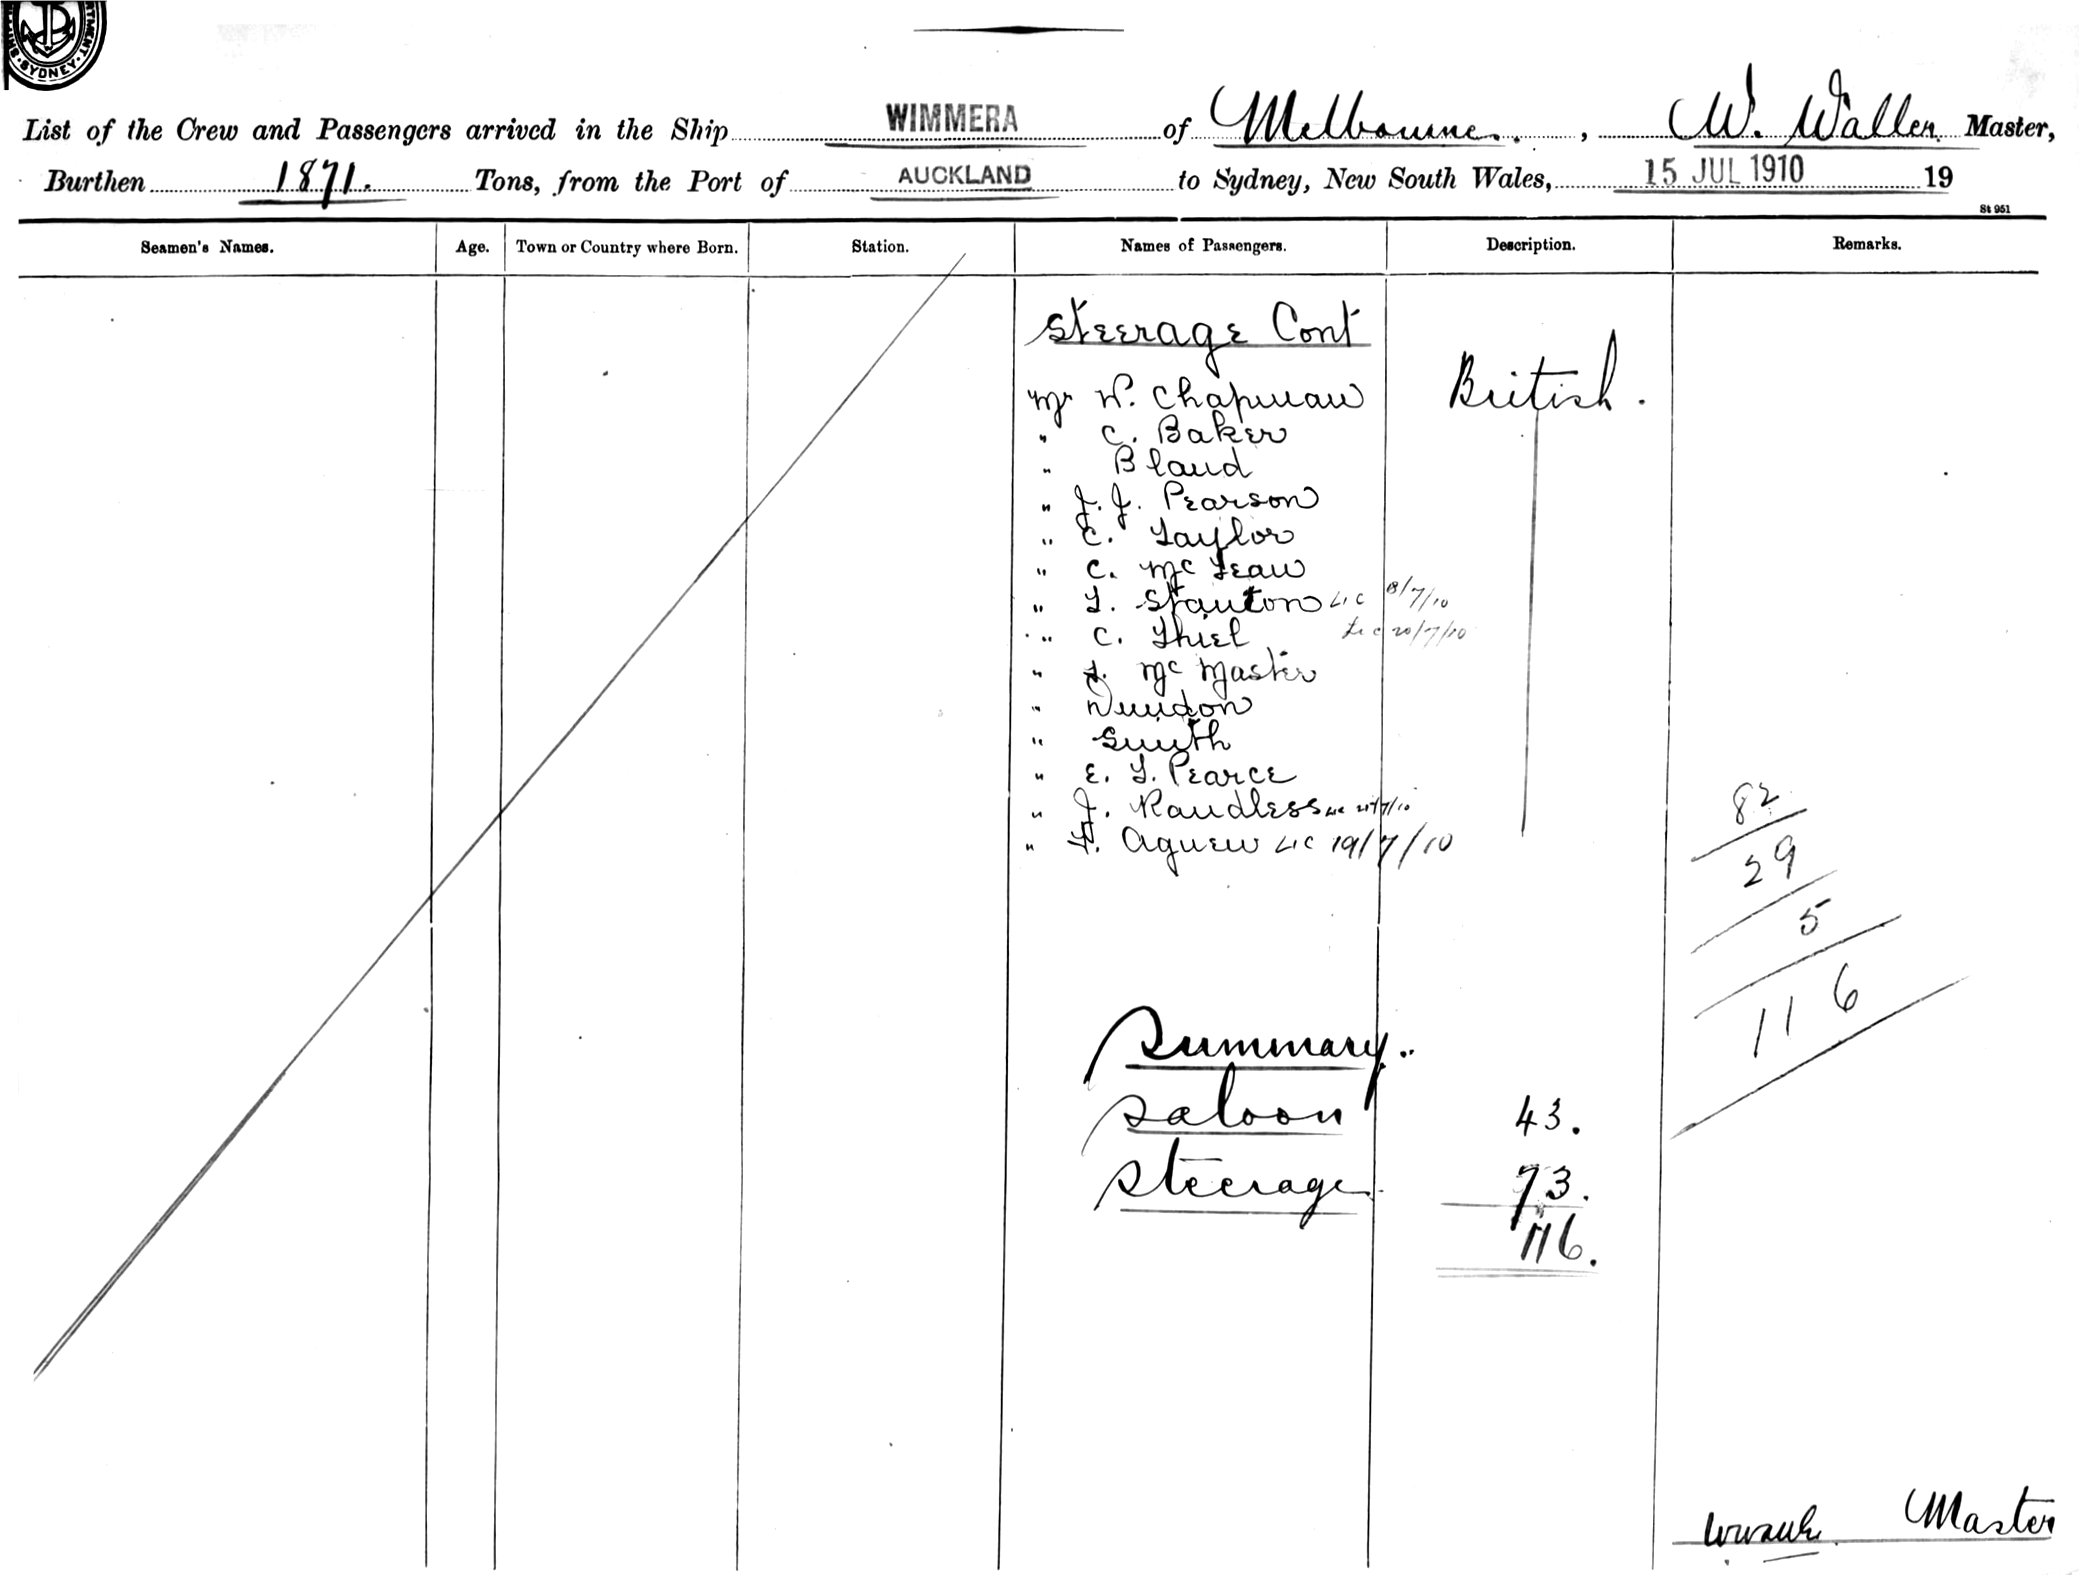 RTMENT
SYDNEY
List of the Crew and Passengers arrived in the Ship WIMMERA of Melbourne. , W. Waller Master,
Burthen 1871. Tons, from the Port of AUCKLAND to Sydney, New South Wales, 15 JUL 1910 19
St 951
Seamen's Names. Age. Town or Country where Born. Station. Names of Passengers. Description. Remarks.
Steerage Cont
Mr W. Chapman British.
" C. Baker
" Bland
" J. J. Pearson
" C. Taylor
" C. McLean
" L. Stanton Lic 18/7/10
" C. Thiel Lic 20/7/10
" McMaster
"
" Smith
" E. L. Pearce
" J. Randless Lic 21/7/10
" Agnew Lic 19/7/10
82
29
5
116
Summary.
Saloon 43.
Steerage 73.
116.
Master